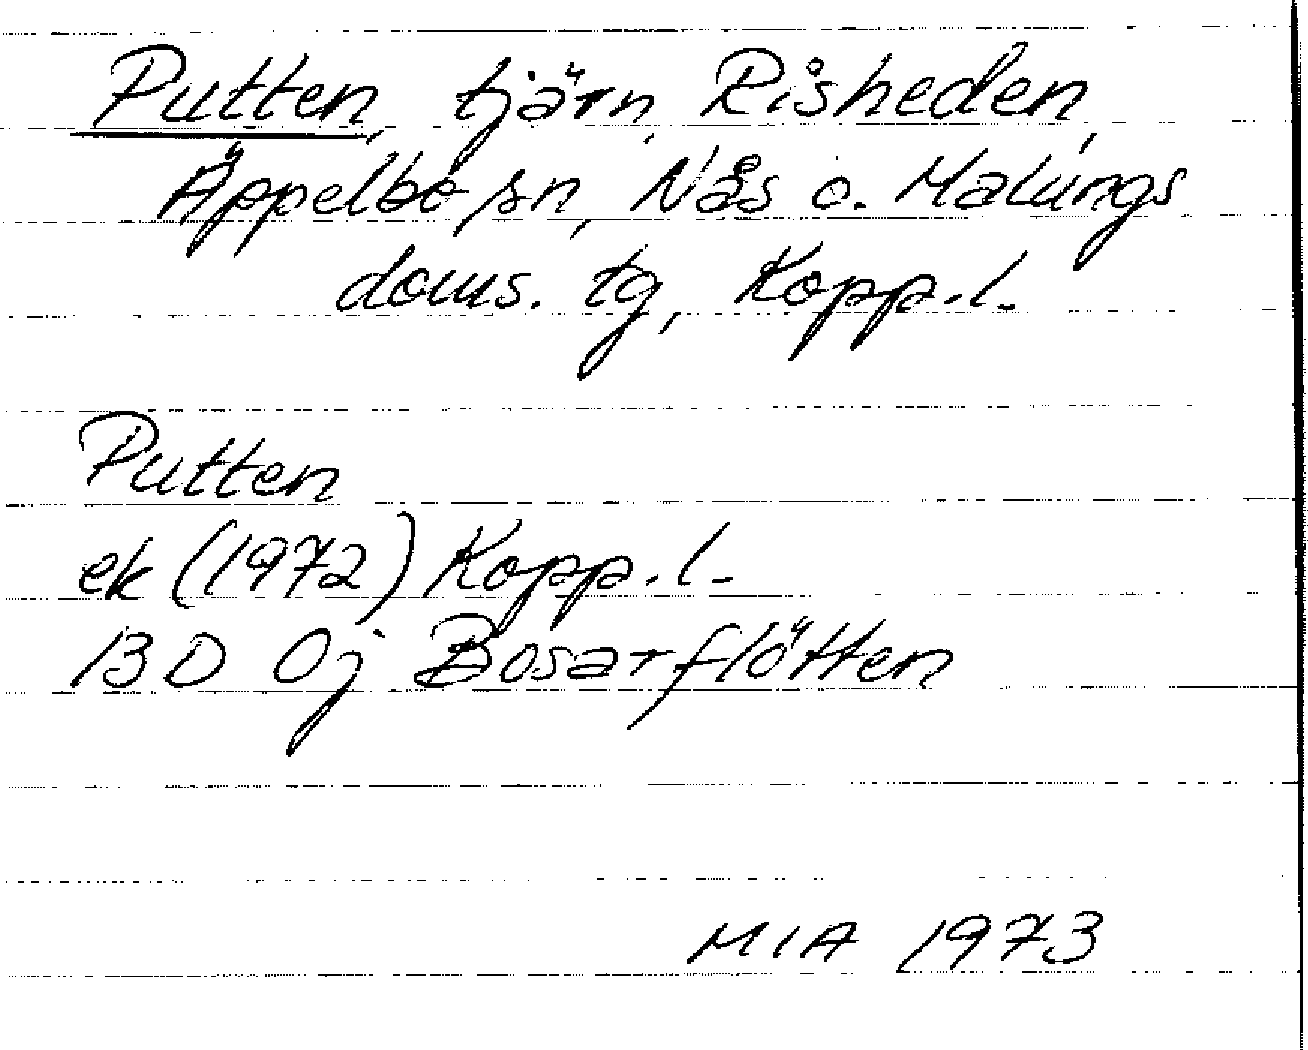 Putten, tjärn, Risheden,
Äppelbo sn, Nås o. Malungs
doms. tg, Kopp.l.
Putten
ek (1972) Kopp.l.
13D 0j Bosarflötten
MIA 1973